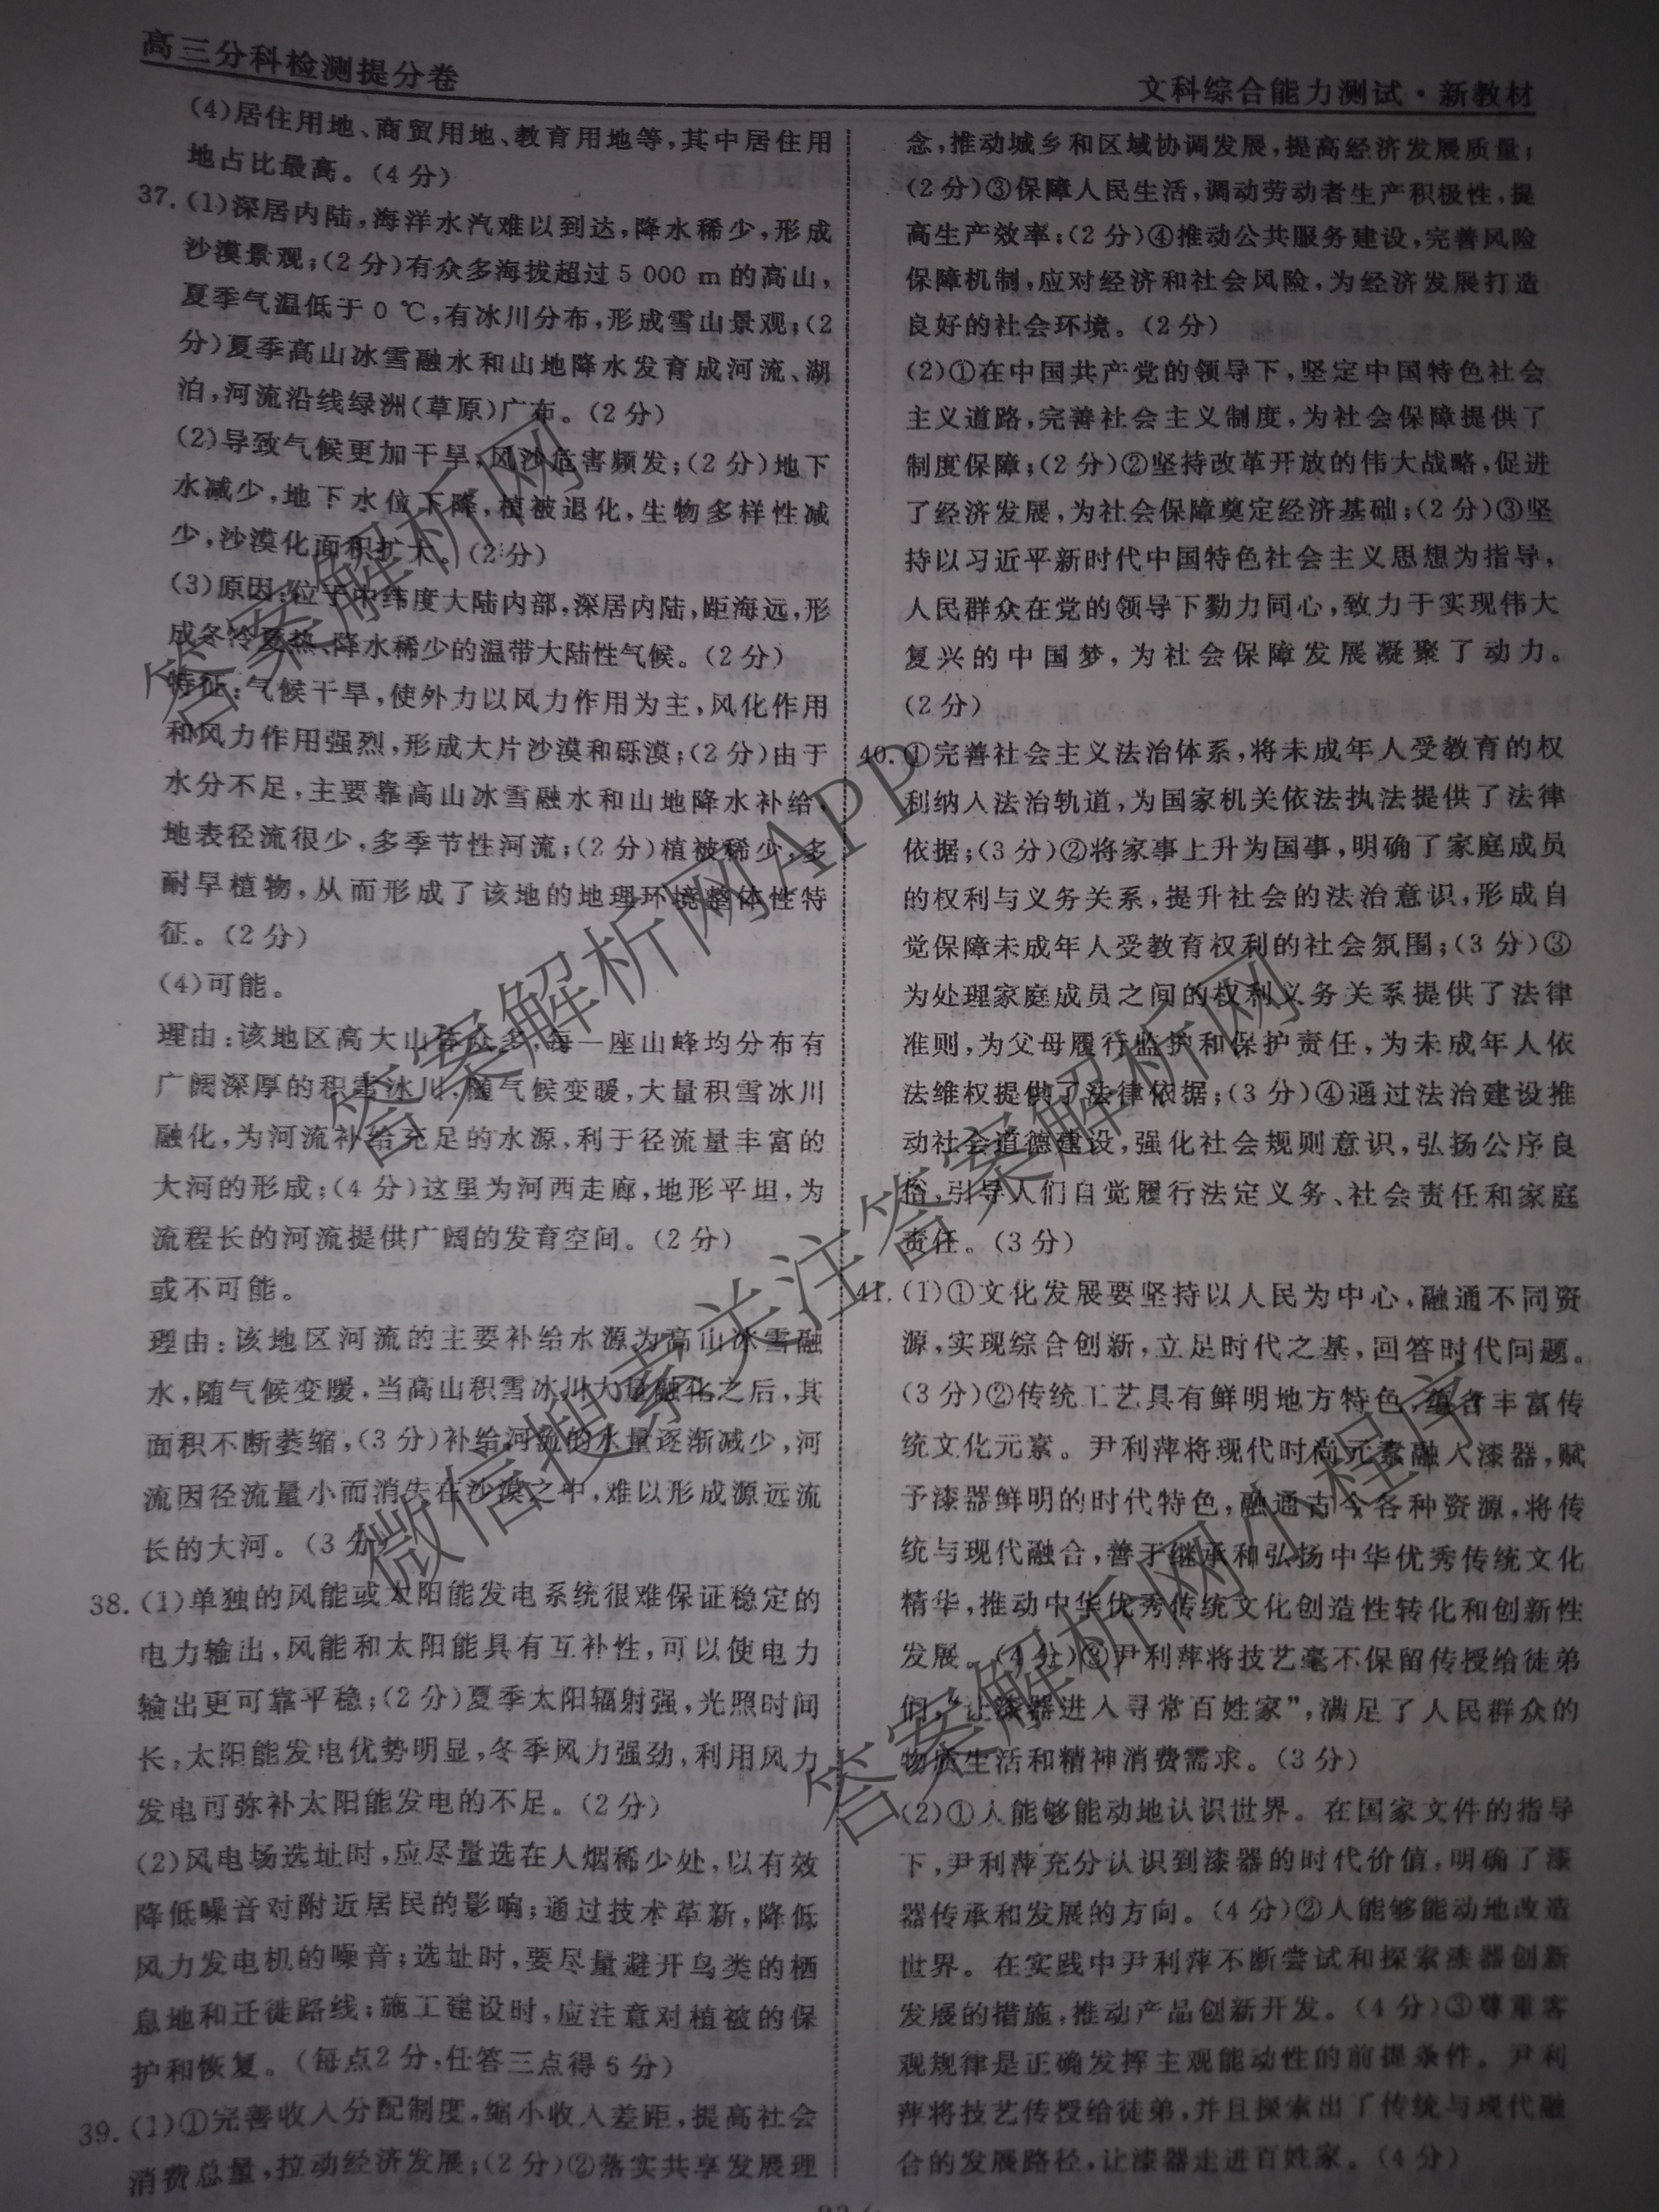 高三分科检测提分卷
文科综合能力测试·新教材
(4)居住用地、商贸用地、教育用地等,其中居住用
地占比最高。(4分)
37.(1)深居内陆,海洋水汽难以到达,降水稀少,形成
沙漠景观;(2分)有众多海拔超过5 000 m的高山,
夏季气温低于0 ℃,有冰川分布,形成雪山景观;(2
分)夏季高山冰雪融水和山地降水发育成河流、湖
泊,河流沿线绿洲(草原)广布。(2分)
(2)导致气候更加干旱,风沙危害频发;(2分)地下
水减少,地下水位下降,植被退化,生物多样性减
少,沙漠化面积扩大。(2分)
(3)原因:位于中纬度大陆内部,深居内陆,距海远,形
成冬冷夏热、降水稀少的温带大陆性气候。(2分)
特征:气候干旱,使外力以风力作用为主,风化作用
和风力作用强烈,形成大片沙漠和砾漠;(2分)由于
水分不足,主要靠高山冰雪融水和山地降水补给,
地表径流很少,多季节性河流;(2分)植被稀少,多
耐旱植物,从而形成了该地的地理环境整体性特
征。(2分)
(4)可能。
理由:该地区高大山脉众多,每一座山峰均分布有
广阔深厚的积雪冰川,随气候变暖,大量积雪冰川
融化,为河流补给充足的水源,利于径流量丰富的
大河的形成;(4分)这里为河西走廊,地形平坦,为
流程长的河流提供广阔的发育空间。(2分)
或不可能。
理由:该地区河流的主要补给水源为高山冰雪融
水,随气候变暖,当高山积雪冰川大量融化之后,其
面积不断萎缩,(3分)补给河流的水量逐渐减少,河
流因径流量小而消失在沙漠之中,难以形成源远流
长的大河。(3分)
38.(1)单独的风能或太阳能发电系统很难保证稳定的
电力输出,风能和太阳能具有互补性,可以使电力
输出更可靠平稳;(2分)夏季太阳辐射强,光照时间
长,太阳能发电优势明显,冬季风力强劲,利用风力
发电可弥补太阳能发电的不足。(2分)
(2)风电场选址时,应尽量选在人烟稀少处,以有效
降低噪音对附近居民的影响;通过技术革新,降低
风力发电机的噪音;选址时,要尽量避开鸟类的栖
息地和迁徙路线;施工建设时,应注意对植被的保
护和恢复。(每点2分,任答三点得6分)
39.(1)①完善收入分配制度,缩小收入差距,提高社会
消费总量,拉动经济发展;(2分)②落实共享发展理
念,推动城乡和区域协调发展,提高经济发展质量;
(2分)③保障人民生活,调动劳动者生产积极性,提
高生产效率;(2分)④推动公共服务建设,完善风险
保障机制,应对经济和社会风险,为经济发展打造
良好的社会环境。(2分)
(2)①在中国共产党的领导下,坚定中国特色社会
主义道路,完善社会主义制度,为社会保障提供了
制度保障;(2分)②坚持改革开放的伟大战略,促进
了经济发展,为社会保障奠定经济基础;(2分)③坚
持以习近平新时代中国特色社会主义思想为指导,
人民群众在党的领导下勠力同心,致力于实现伟大
复兴的中国梦,为社会保障发展凝聚了动力。
(2分)
40.①完善社会主义法治体系,将未成年人受教育的权
利纳入法治轨道,为国家机关依法执法提供了法律
依据;(3分)②将家事上升为国事,明确了家庭成员
的权利与义务关系,提升社会的法治意识,形成自
觉保障未成年人受教育权利的社会氛围;(3分)③
为处理家庭成员之间的权利义务关系提供了法律
准则,为父母履行监护和保护责任,为未成年人依
法维权提供了法律依据;(3分)④通过法治建设推
动社会道德建设,强化社会规则意识,弘扬公序良
俗,引导人们自觉履行法定义务、社会责任和家庭
责任。(3分)
41.(1)①文化发展要坚持以人民为中心,融通不同资
源,实现综合创新,立足时代之基,回答时代问题。
(3分)②传统工艺具有鲜明地方特色,蕴含丰富传
统文化元素。尹利萍将现代时尚元素融入漆器,赋
予漆器鲜明的时代特色,融通古今各种资源,将传
统与现代融合,善于继承和弘扬中华优秀传统文化
精华,推动中华优秀传统文化创造性转化和创新性
发展。(4分)③尹利萍将技艺毫不保留传授给徒弟
们,“让漆器进入寻常百姓家”,满足了人民群众的
物质生活和精神消费需求。(3分)
(2)①人能够能动地认识世界。在国家文件的指导
下,尹利萍充分认识到漆器的时代价值,明确了漆
器传承和发展的方向。(4分)②人能够能动地改造
世界。在实践中尹利萍不断尝试和探索漆器创新
发展的措施,推动产品创新开发。(4分)③尊重客
观规律是正确发挥主观能动性的前提条件。尹利
萍将技艺传授给徒弟,并且探索出了传统与现代融
合的发展路径,让漆器走进百姓家。(4分)
答案解析网
答案解析网APP
微信搜索关注答案解析网
答案解析网小程序